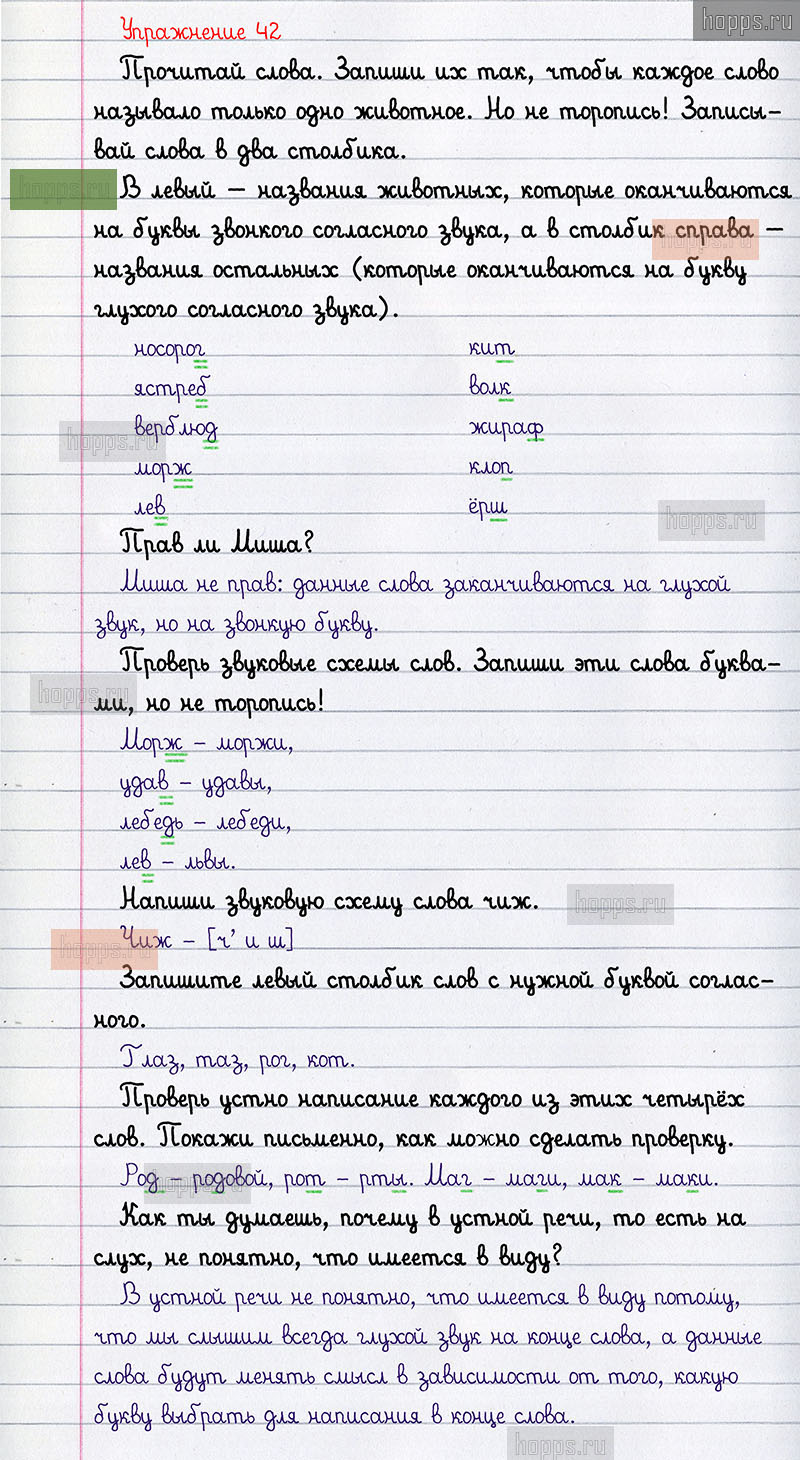 hopps.ru
Упражнение 42
Прочитай слова. Запиши их так, чтобы каждое слово
называло только одно животное. Но не торопись! Записы-
вай слова в два столбика.
hopps.ru
В левый – названия животных, которые оканчиваются
на буквы звонкого согласного звука, а в столбик справа –
hopps.ru
названия остальных (которые оканчиваются на букву
глухого согласного звука).
носорог кит
ястреб волк
верблюд жираф
hopps.ru
морж клоп
лев ёрш
hopps.ru
Прав ли Миша?
Миша не прав: данные слова заканчиваются на глухой
звук, но на звонкую букву.
Проверь звуковые схемы слов. Запиши эти слова буква-
hopps.ru
ми, но не торопись!
Морж – моржи,
удав – удавы,
лебедь – лебеди,
лев – львы.
Напиши звуковую схему слова чиж.
hopps.ru
Чиж – [ч’ и ш]
hopps.ru
Запишите левый столбик слов с нужной буквой соглас-
ного.
Глаз, таз, рог, кот.
Проверь устно написание каждого из этих четырёх
слов. Покажи письменно, как можно сделать проверку.
Род – родовой, рот – рты. Маг – маги, мак – маки.
hopps.ru
Как ты думаешь, почему в устной речи, то есть на
слух, не понятно, что имеется в виду?
В устной речи не понятно, что имеется в виду потому,
что мы слышим всегда глухой звук на конце слова, а данные
слова будут менять смысл в зависимости от того, какую
букву выбрать для написания в конце слова.
hopps.ru